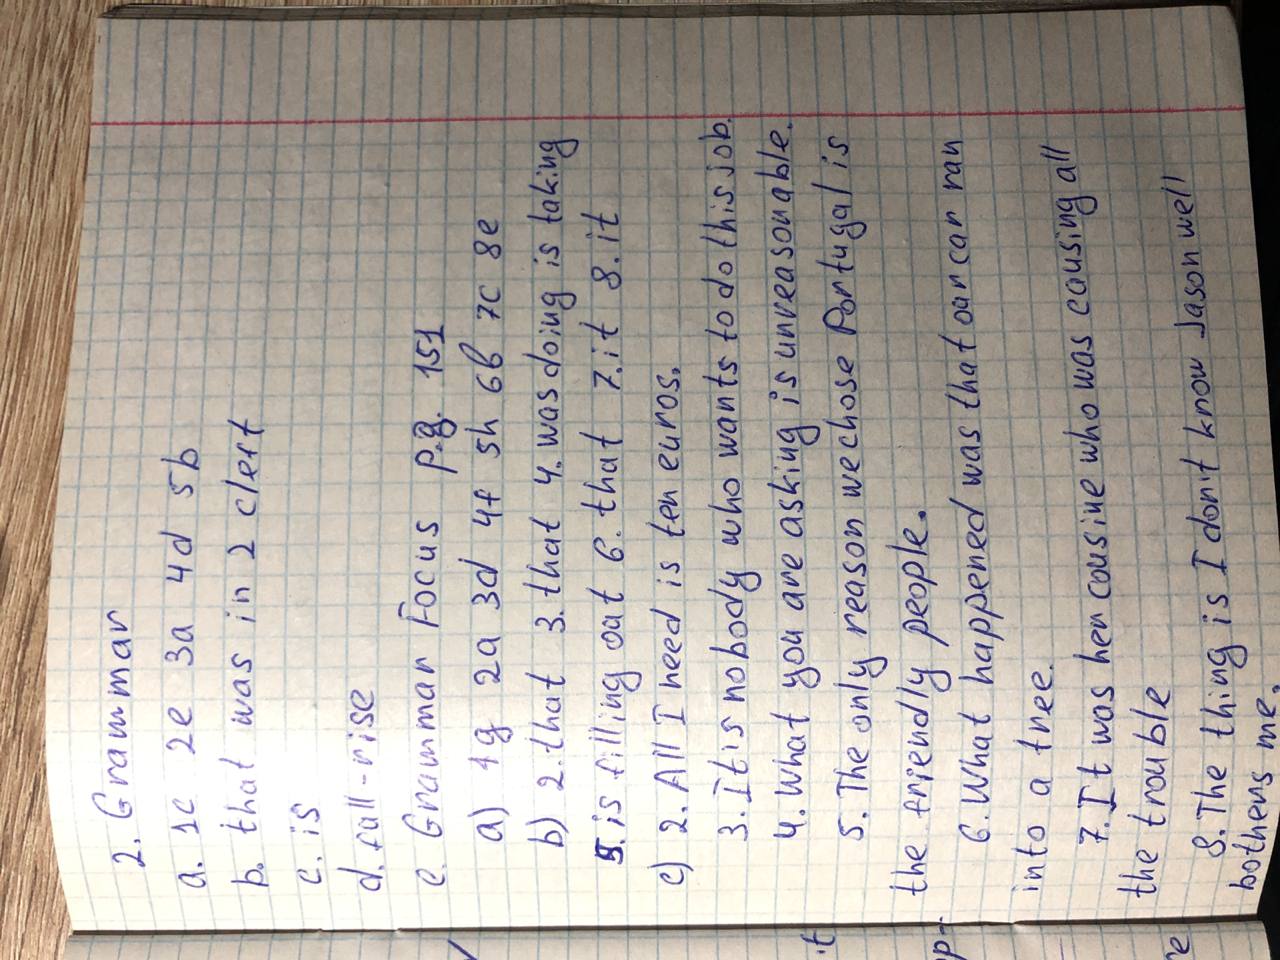 2. Grammar
a. 1c 2e 3a 4d 5b
b. that was in 2 cleft
c. is
d. fall-rise
e. Grammar Focus p.g. 151
a) 1g 2a 3d 4f 5h 6b 7c 8e
b) 2. that 3. that 4. was doing is taking
5. is filling out 6. that 7. it 8. it
c) 2. All I need is ten euros.
3. It is nobody who wants to do this job.
4. What you are asking is unreasonable.
5. The only reason we chose Portugal is
the friendly people.
6. What happened was that our car ran
into a tree.
7. It was her cousine who was causing all
the trouble
8. The thing is I don't know Jason well
bothers me.
it
p-
re